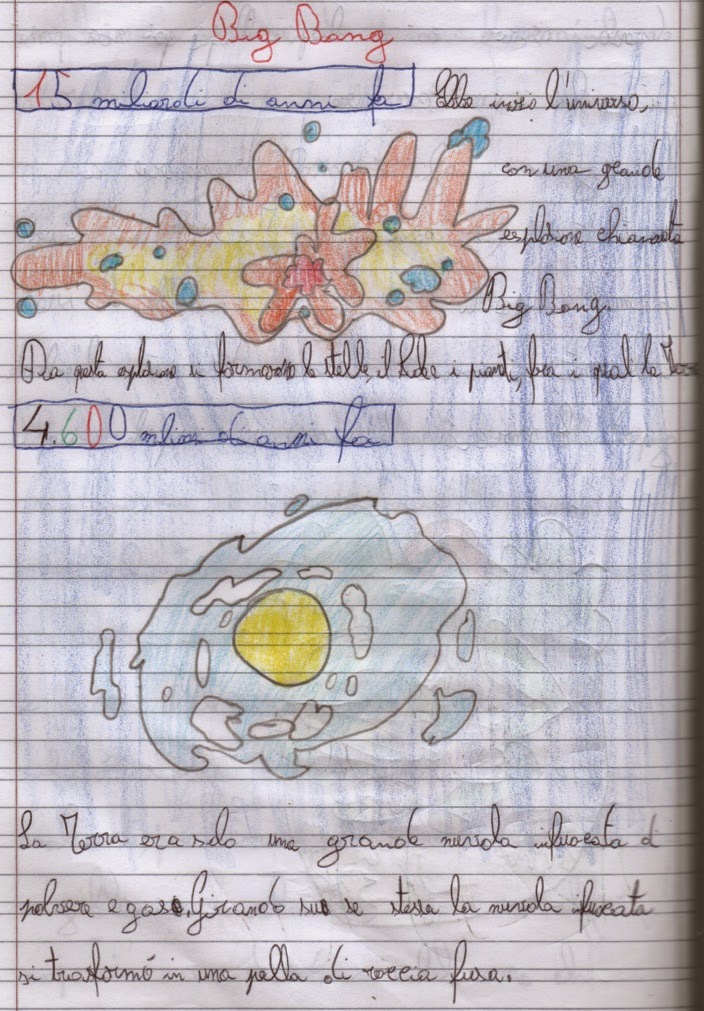 Big Bang
15 miliardi di anni fa
l'universo,
con una grande
esplosione chiamata
Big Bang.
Da questa esplosione si formarono le stelle, il Sole i pianeti, fra i quali la Terra
4.600 milioni di anni fa
La Terra era solo una grande nuvola infuocata di
polvere e gas. Girando su se stessa la nuvola infuocata
si trasformò in una palla di roccia fusa.